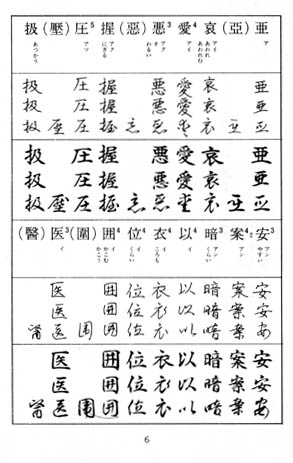 亜 (亞) 哀 愛⁴ 悪³ (惡) 握 圧⁵ (壓) 扱
ア アイ あわれ あわれむ アイ アク オ わるい アク にぎる アツ あつかう
亜 哀 愛 悪 握 圧 扱
亜 哀 愛 悪 握 圧 扱
亜 亞 哀 愛 悪 惡 握 圧 壓 扱
亜 哀 愛 悪 握 圧 扱
亜 哀 愛 悪 握 圧 扱
亜 亞 哀 愛 悪 惡 握 圧 壓 扱
安³ 案⁴ 暗³ 以⁴ 衣⁴ 位⁴ 囲⁴ (圍) 医³ (醫)
アン やすい アン アン くらい イ イ ころも イ くらい イ かこむ かこう イ
安 案 暗 以 衣 位 囲 医
安 案 暗 以 衣 位 囲 医
安 案 暗 以 衣 位 囲 圍 医 醫
安 案 暗 以 衣 位 囲 医
安 案 暗 以 衣 位 囲 医
安 案 暗 以 衣 位 囲 圍 医 醫
6